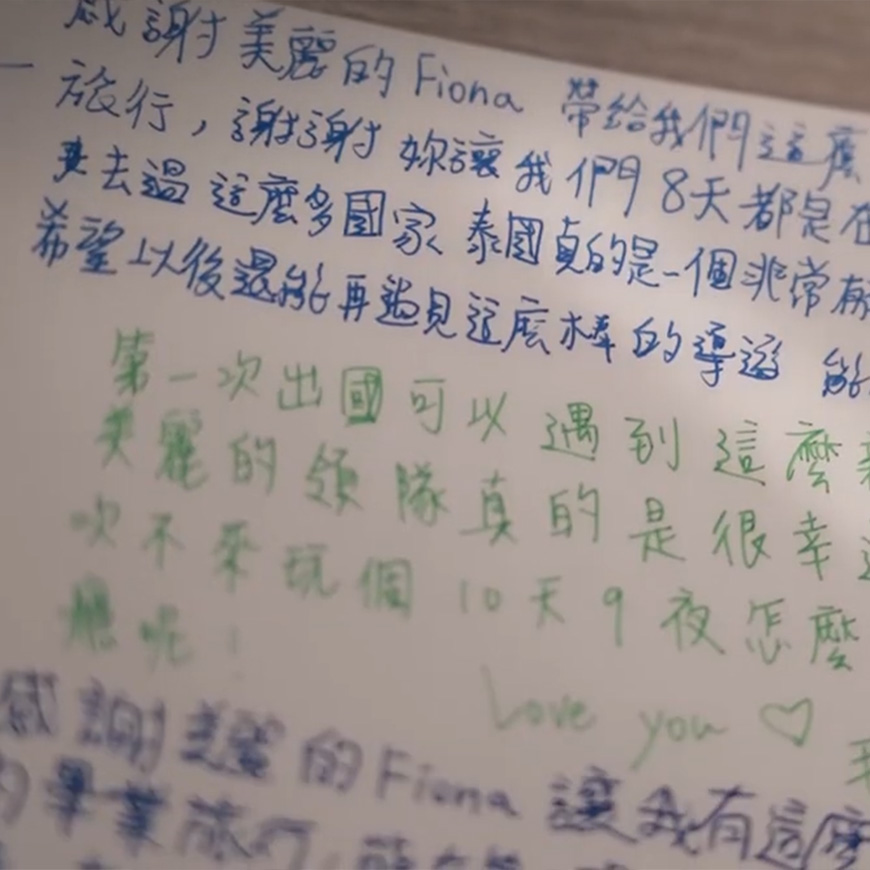 感謝美麗的Fiona 帶給我們這麼
旅行，謝謝妳讓我們8天都是在
去過這麼多國家、泰國真的是一個非常有
希望以後還能再遇見這麼棒的導遊 能
第一次出國可以遇到這麼
美麗的領隊真的是很幸運
次不來玩個10天9夜怎麼
應呢！
Love you ♡
感謝美麗的Fiona 讓我有這麼
的畢業旅行，